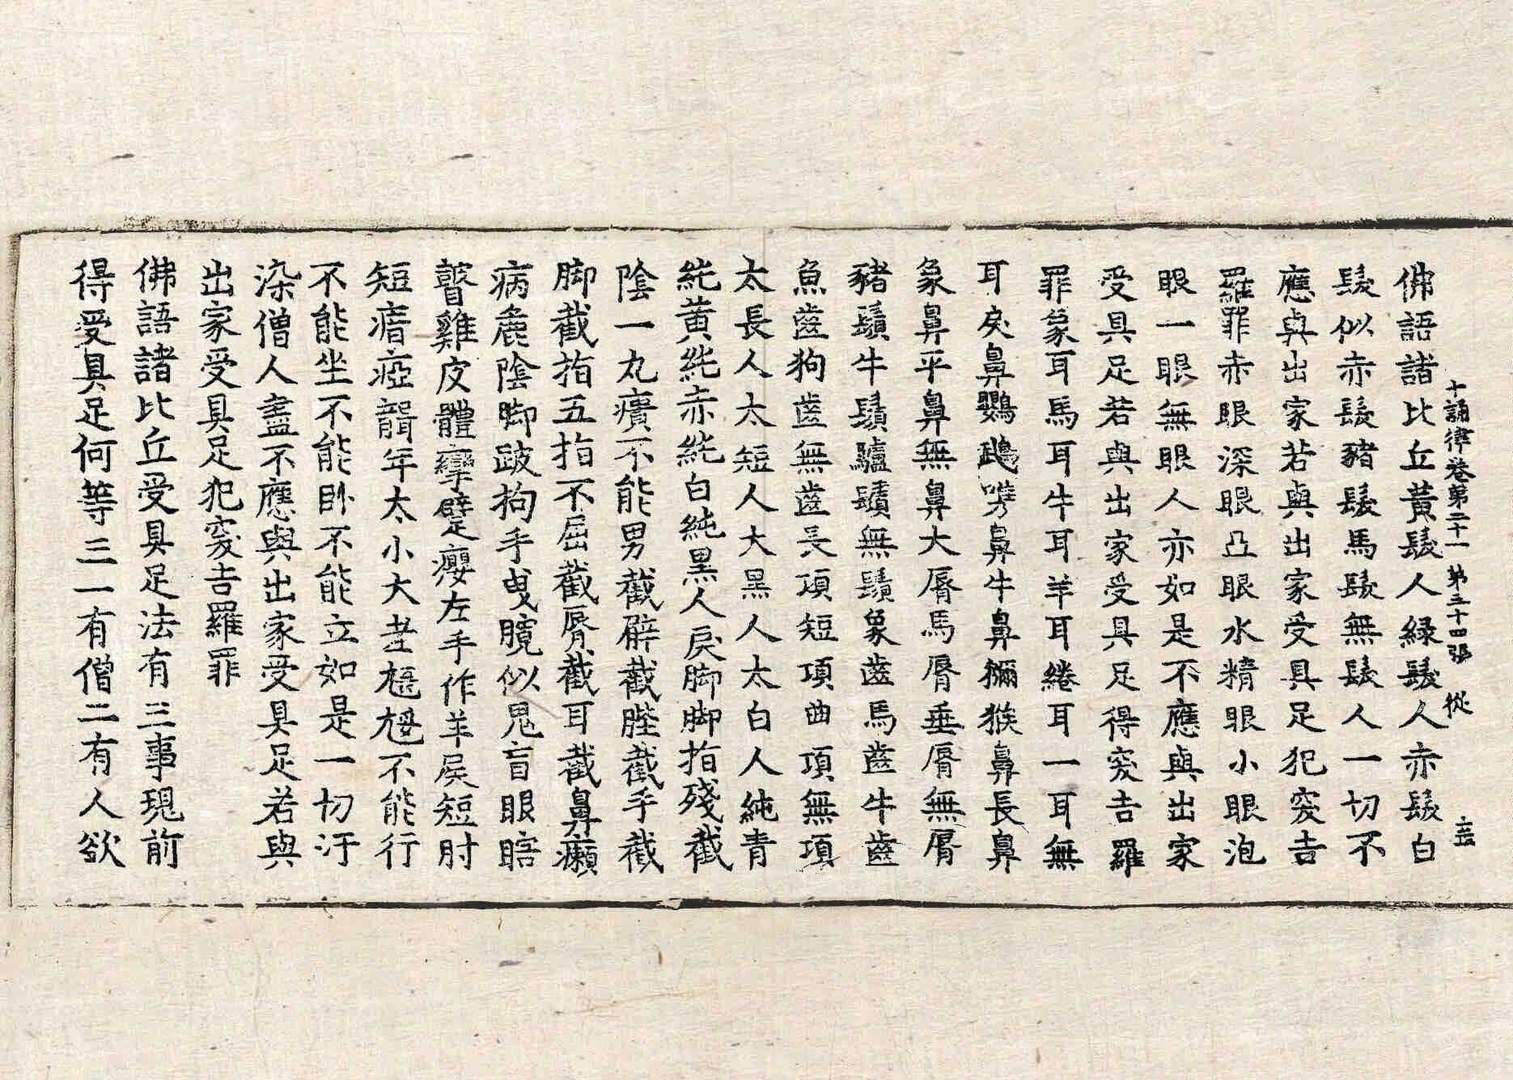 十誦律卷第二十一 第三十四張 從
佛語諸比丘黃髮人綠髮人赤髮白
髮似赤髮豬髮馬髮無髮人一切不
應與出家若與出家受具足犯突吉
羅罪赤眼深眼凸眼水精眼小眼泡
眼一眼無眼人亦如是不應與出家
受具足若與出家受具足得突吉羅
罪象耳馬耳牛耳羊耳綣耳一耳無
耳戾鼻鸚鵡嘴鼻牛鼻獼猴鼻長鼻
象鼻平鼻無鼻大脣馬脣垂脣無脣
豬鬚牛鬚驢鬚無鬚象齒馬齒牛齒
魚齒狗齒無齒長項短項曲項無項
太長人太短人大黑人太白人純青
純黃純赤純白純黑人戾脚脚指殘截
陰一丸㿗不能男截臂截䏶截手截
脚截指五指不屈截脣截耳截鼻癩
病麁陰脚跛拘手曳髖似鬼盲眼瞎
瞽雞皮體攣躄癭左手作羊屎短肘
短瘖瘂聾年太小大老不能行
不能坐不能臥不能立如是一切汙
染僧人盡不應與出家受具足若與
出家受具足犯突吉羅罪
佛語諸比丘受具足法有三事現前
得受具足何等三一有僧二有人欲